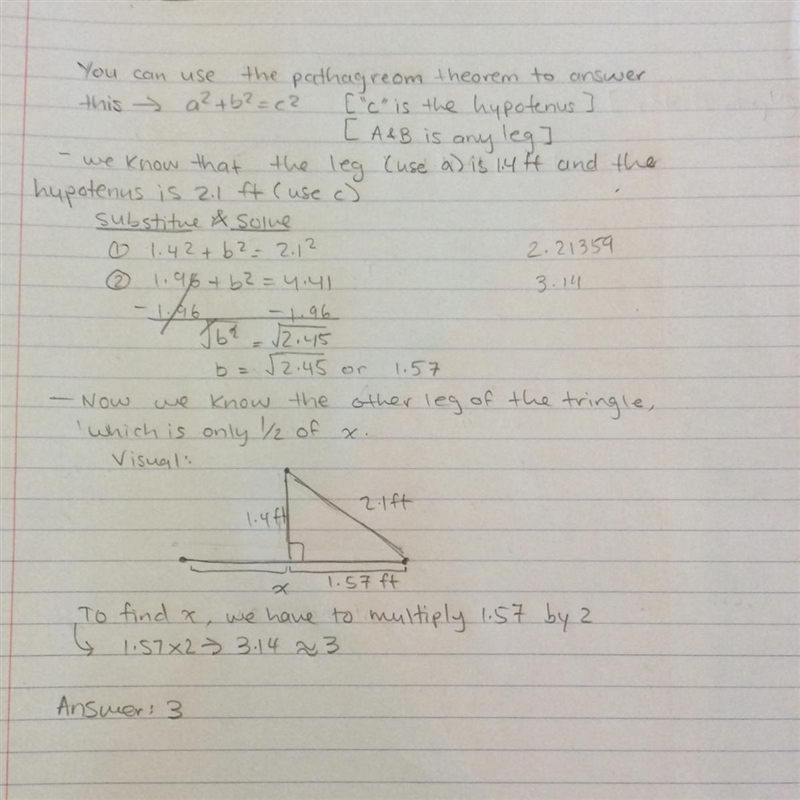 You can use the pathagreom theorem to answer
this → a² + b² = c² ["c" is the hypotenus]
[A&B is any leg]
- we know that the leg (use a) is 1.4 ft and the
hypotenus is 2.1 ft (use c)
Substitue & Solve
① 1.4² + b² = 2.1² 2.21359
② 1.96 + b² = 4.41 3.14
- 1.96 - 1.96
√b² = √2.45
b = √2.45 or 1.57
- Now we know the other leg of the tringle,
which is only 1/2 of x.
Visual:
2.1ft
1.4ft
x 1.57 ft
To find x, we have to multiply 1.57 by 2
↳ 1.57x2 → 3.14 ≈ 3
Answer: 3